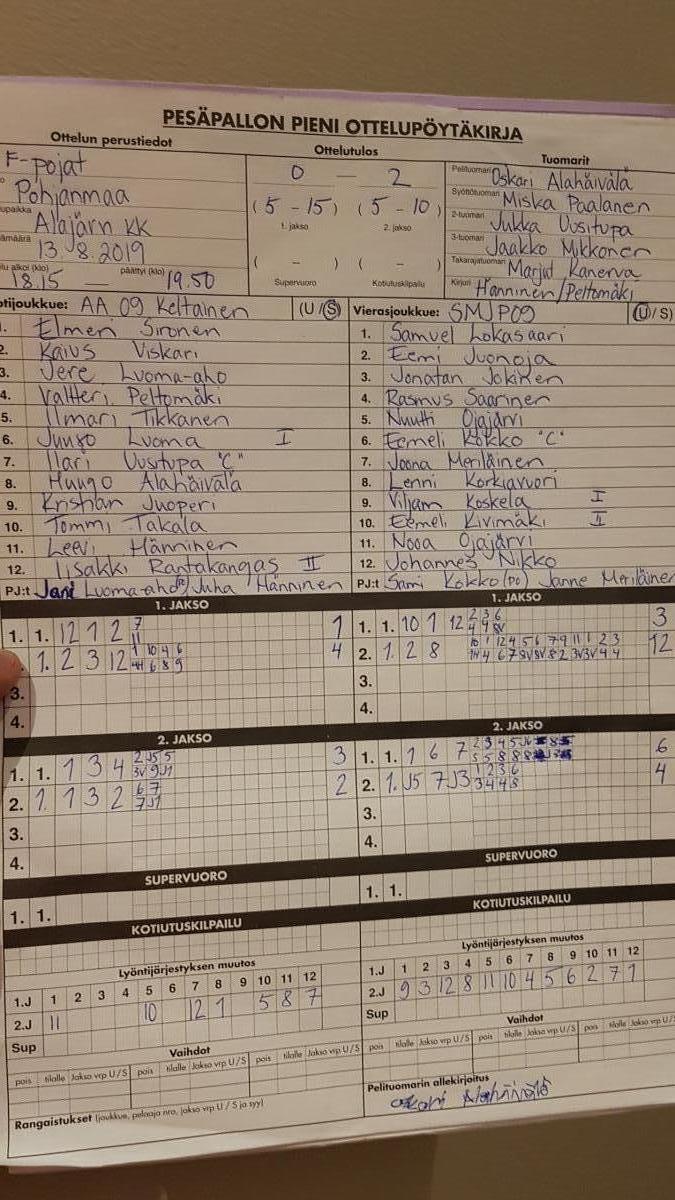 PESÄPALLON PIENI OTTELUPÖYTÄKIRJA
Ottelun perustiedot
F-pojat
Pohjanmaa
Alajärn KK
13.8.2019
18.15 — päättyi (klo) 19.50
Ottelutulos
0 — 2
(5 - 15) (5 - 10)
1. jakso 2. jakso
( - ) ( - )
Supervuoro Kotiutuskilpailu
Tuomarit
Pelituomari Oskari Alahäivälä
Syöttötuomari Miska Paalanen
2-tuomari Jukka Uusitupa
3-tuomari Jaakko Mikkonen
Takarajatuomari Marjut Kanerva
Kirjuri Hänninen/Peltomäki
otijoukkue: AA 09 Keltainen (U/S)
1. Elmeri Sironen
2. Kaius Viskari
3. Jere Luoma-aho
4. Valtteri Peltomäki
5. Ilmari Tikkanen
6. Juuso Luoma I
7. Ilari Uusitupa "C"
8. Huugo Alahäivälä
9. Kristian Juoperi
10. Tommi Takala
11. Leevi Hänninen
12. Iisakki Rantakangas II
PJ:t Jani Luoma-aho / Juha Hänninen
Vierasjoukkue: SMJP09 (U/S)
1. Samuel Lokasaari
2. Eemi Juonoja
3. Jonatan Jokinen
4. Rasmus Saarinen
5. Nuutti Ojajärvi
6. Eemeli Kokko "C"
7. Joona Meriläinen
8. Lenni Korkiavuori
9. Viljam Koskela I
10. Eemeli Kivimäki II
11. Nooa Ojajärvi
12. Johannes Nikko
PJ:t Sami Kokko (PO) Janne Meriläinen
1. JAKSO
1. 1. 12 1 2 7 11 1
1. 2 3 12 1 10 4 6 4
3.
4.
1. JAKSO
1. 1. 10 1 12 2 3 6 4 4 8V 3
2. 1. 2 8 12
3.
4.
2. JAKSO
1. 1. 1 3 4 2 J5 5 3V 9 J1 3
2. 1. 1 3 2 6 7 7 J1 2
3.
4.
2. JAKSO
1. 1. 1 6 7 2 3 4 5 6
2. 1. J5 7 J3 1 2 3 6 3 4 4 8 4
3.
4.
SUPERVUORO
1. 1.
SUPERVUORO
1. 1.
KOTIUTUSKILPAILU
KOTIUTUSKILPAILU
Lyöntijärjestyksen muutos
1.J 1 2 3 4 5 6 7 8 9 10 11 12
2.J 11 10 12 1 5 8 7
Sup
Lyöntijärjestyksen muutos
1.J 1 2 3 4 5 6 7 8 9 10 11 12
2.J 9 3 12 8 11 10 4 5 6 2 7 1
Sup
Vaihdot
pois tilalle Jakso vrp U/S pois tilalle Jakso vrp U/S pois tilalle Jakso vrp U/S
Vaihdot
pois tilalle Jakso vrp U/S pois tilalle Jakso vrp U/S pois tilalle Jakso vrp U/S
Rangaistukset (joukkue, pelaaja nro, jakso vrp U / S ja syy)
Pelituomarin allekirjoitus
Oskari Alahäivälä